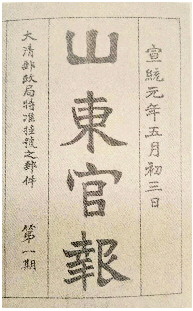 宣統元年五月初三日
山東官報
大清郵政局特准挂號之郵件
第一期